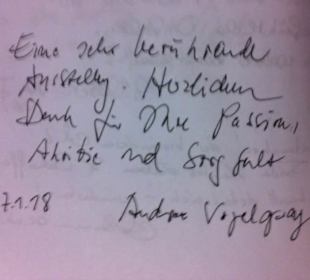 Eine sehr berührende
Ausstellung. Herzlichen
Dank für Ihre Passion,
Akribie und Sorgfalt
7.1.18 Andrea